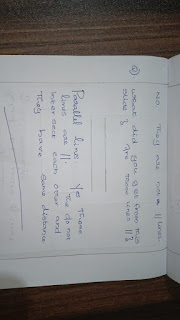 No They are not a // lines.
② what did you get from this
slide ? are those lines // ?
Parallel lines. Yes These
lines are //. The do not
inter seck each other and
They have same distance